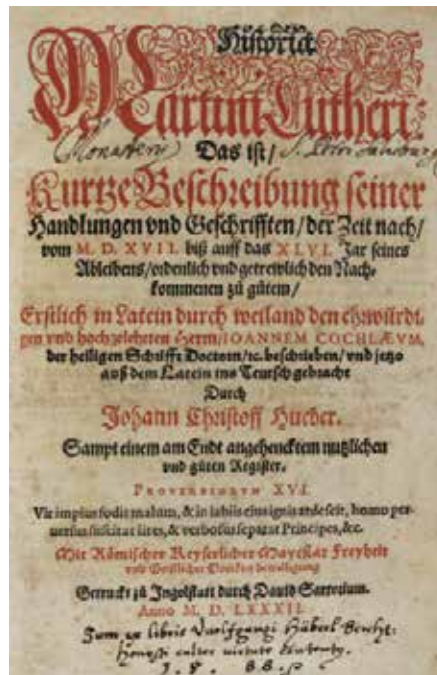 Historia
Martini Lutheri:
Monasterij S. Petri Salisburg
Das ist/
Kurtze Beschreibung seiner
Handlungen vnd Geschrifften/ der Zeit nach/
vom M. D. XVII. biß auff das XLVI. Jar seines
Ableibens/ ordenlich vnd getrewlich den Nach-
kommenen zů gůtem/
Erstlich in Latein durch weiland den ehrwürdi-
gen vnd hochgelehrten Herrn/ IOANNEM COCHLÆVM,
der heiligen Schrifft Doctorn/ ꝛc. beschriben/ vnd jetzo
auß dem Latein ins Teutsch gebracht
Durch
Johann Christoff Hueber.
Sampt einem am Endt angehencktem nutzlichen
vnd gůten Register.
PROVERBIORVM XVI.
Vir impius fodit malum, & in labiis eius ignis ardescit, homo per-
uersus suscitat lites, & verbosus separat Principes, &c.
Mit Römischer Keyserlicher Mayestat Freyheit
vnd
Getruckt zů Ingolstatt durch Dauid Sartorium.
Anno M. D. LXXXII.
Sum ex libris
virtute